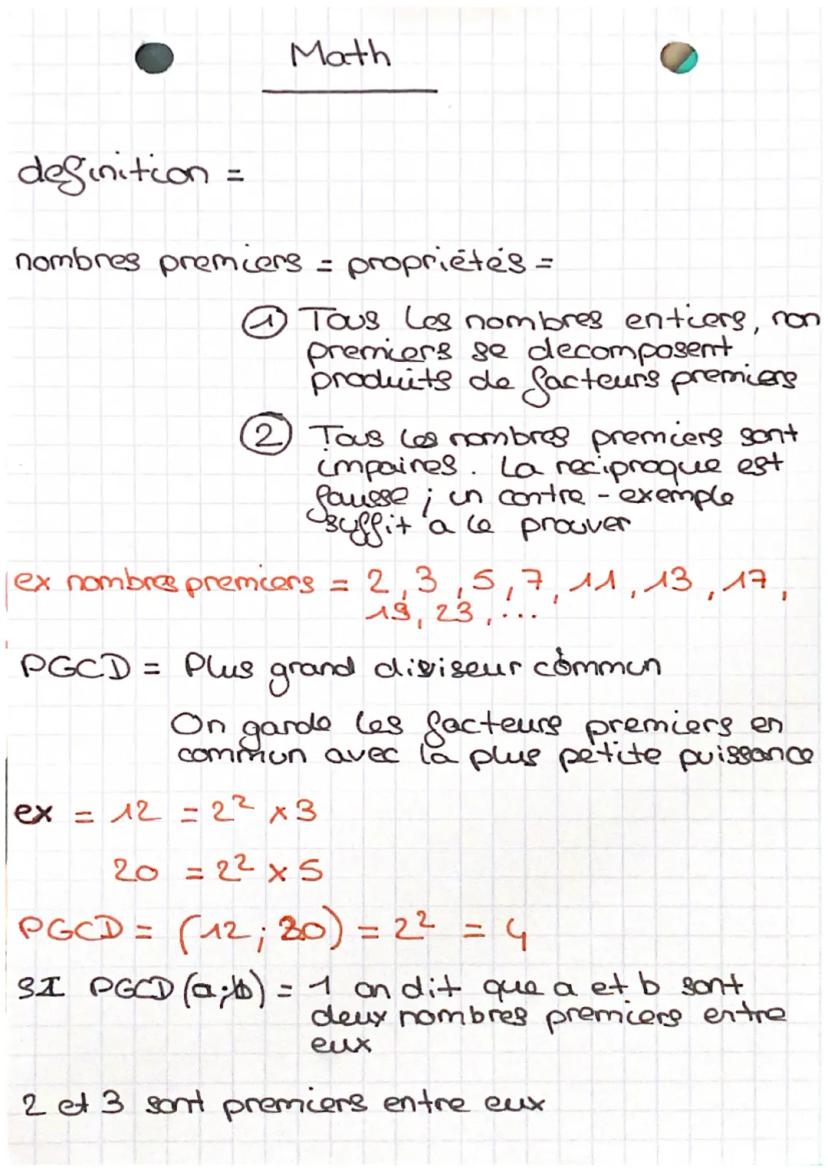 Math
definition =
nombres premiers = propriétés =
① Tous les nombres entiers, non
premiers se decomposent
produits de facteurs premiers
② Tous les nombres premiers sont
impaires. La reciproque est
fausse ; un contre-exemple
suffit a le prouver
ex nombres premiers = 2, 3, 5, 7, 11, 13, 17,
19, 23, ...
PGCD = Plus grand diviseur commun
On garde les facteurs premiers en
commun avec la plus petite puissance
ex = 12 = 2² x 3
20 = 2² x 5
PGCD = (12 ; 20) = 2² = 4
SI PGCD (a;b) = 1 on dit que a et b sont
deux nombres premiers entre
eux
2 et 3 sont premiers entre eux